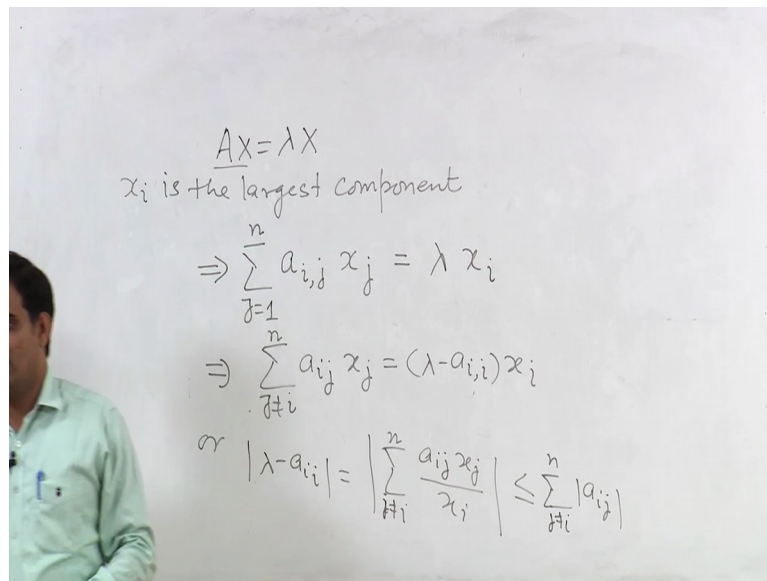 AX = λX
x_i is the largest component
⇒ ∑_{j=1}^{n} a_{i,j} x_j = λ x_i
⇒ ∑_{j≠i}^{n} a_{ij} x_j = (λ-a_{i,i}) x_i
or |λ-a_{ii}| = |∑_{j≠i}^{n} \frac{a_{ij} x_j}{x_i}| ≤ ∑_{j≠i}^{n} |a_{ij}|